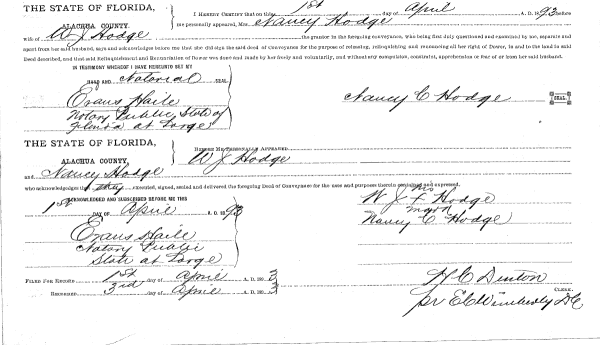 THE STATE OF FLORIDA,
ALACHUA COUNTY.
I HEREBY CERTIFY that on this 1st day of April A. D. 1893 before
me personally appeared, Mrs. Nancy Hodge
wife of W J Hodge the grantor in the foregoing conveyance, who being first duly questioned and examined by me, separate and
apart from her said husband, says and acknowledges before me that she did sign the said deed of Conveyance for the purpose of releasing, relinquishing and renouncing all her right of Dower, in and to the land in said
Deed described, and that said Relinquishment and Renunciation of Dower was done and made by her freely and voluntarily, and without any compulsion, constraint, apprehension or fear of or from her said husband.
IN TESTIMONY WHEREOF I HAVE HEREUNTO SET MY
HAND AND Notarial SEAL.
Evans Haile
Notary Public State of
Florida at Large
Nancy C Hodge SEAL.
THE STATE OF FLORIDA,
ALACHUA COUNTY,
BEFORE ME PERSONALLY APPEARED W J Hodge
and Nancy Hodge
who acknowledged that they executed, signed, sealed and delivered the foregoing Deed of Conveyance for the uses and purposes therein contained and expressed.
ACKNOWLEDGED AND SUBSCRIBED BEFORE ME THIS
1st DAY OF April A. D. 1893
Evans Haile
Notary Public
State at Large
his
W J X Hodge
mark
Nancy C Hodge
FILED FOR RECORD 1st day of April A. D. 1893
RECORDED 3rd day of April A. D. 1893
H C Denton CLERK.
pr E C Wimberly D C